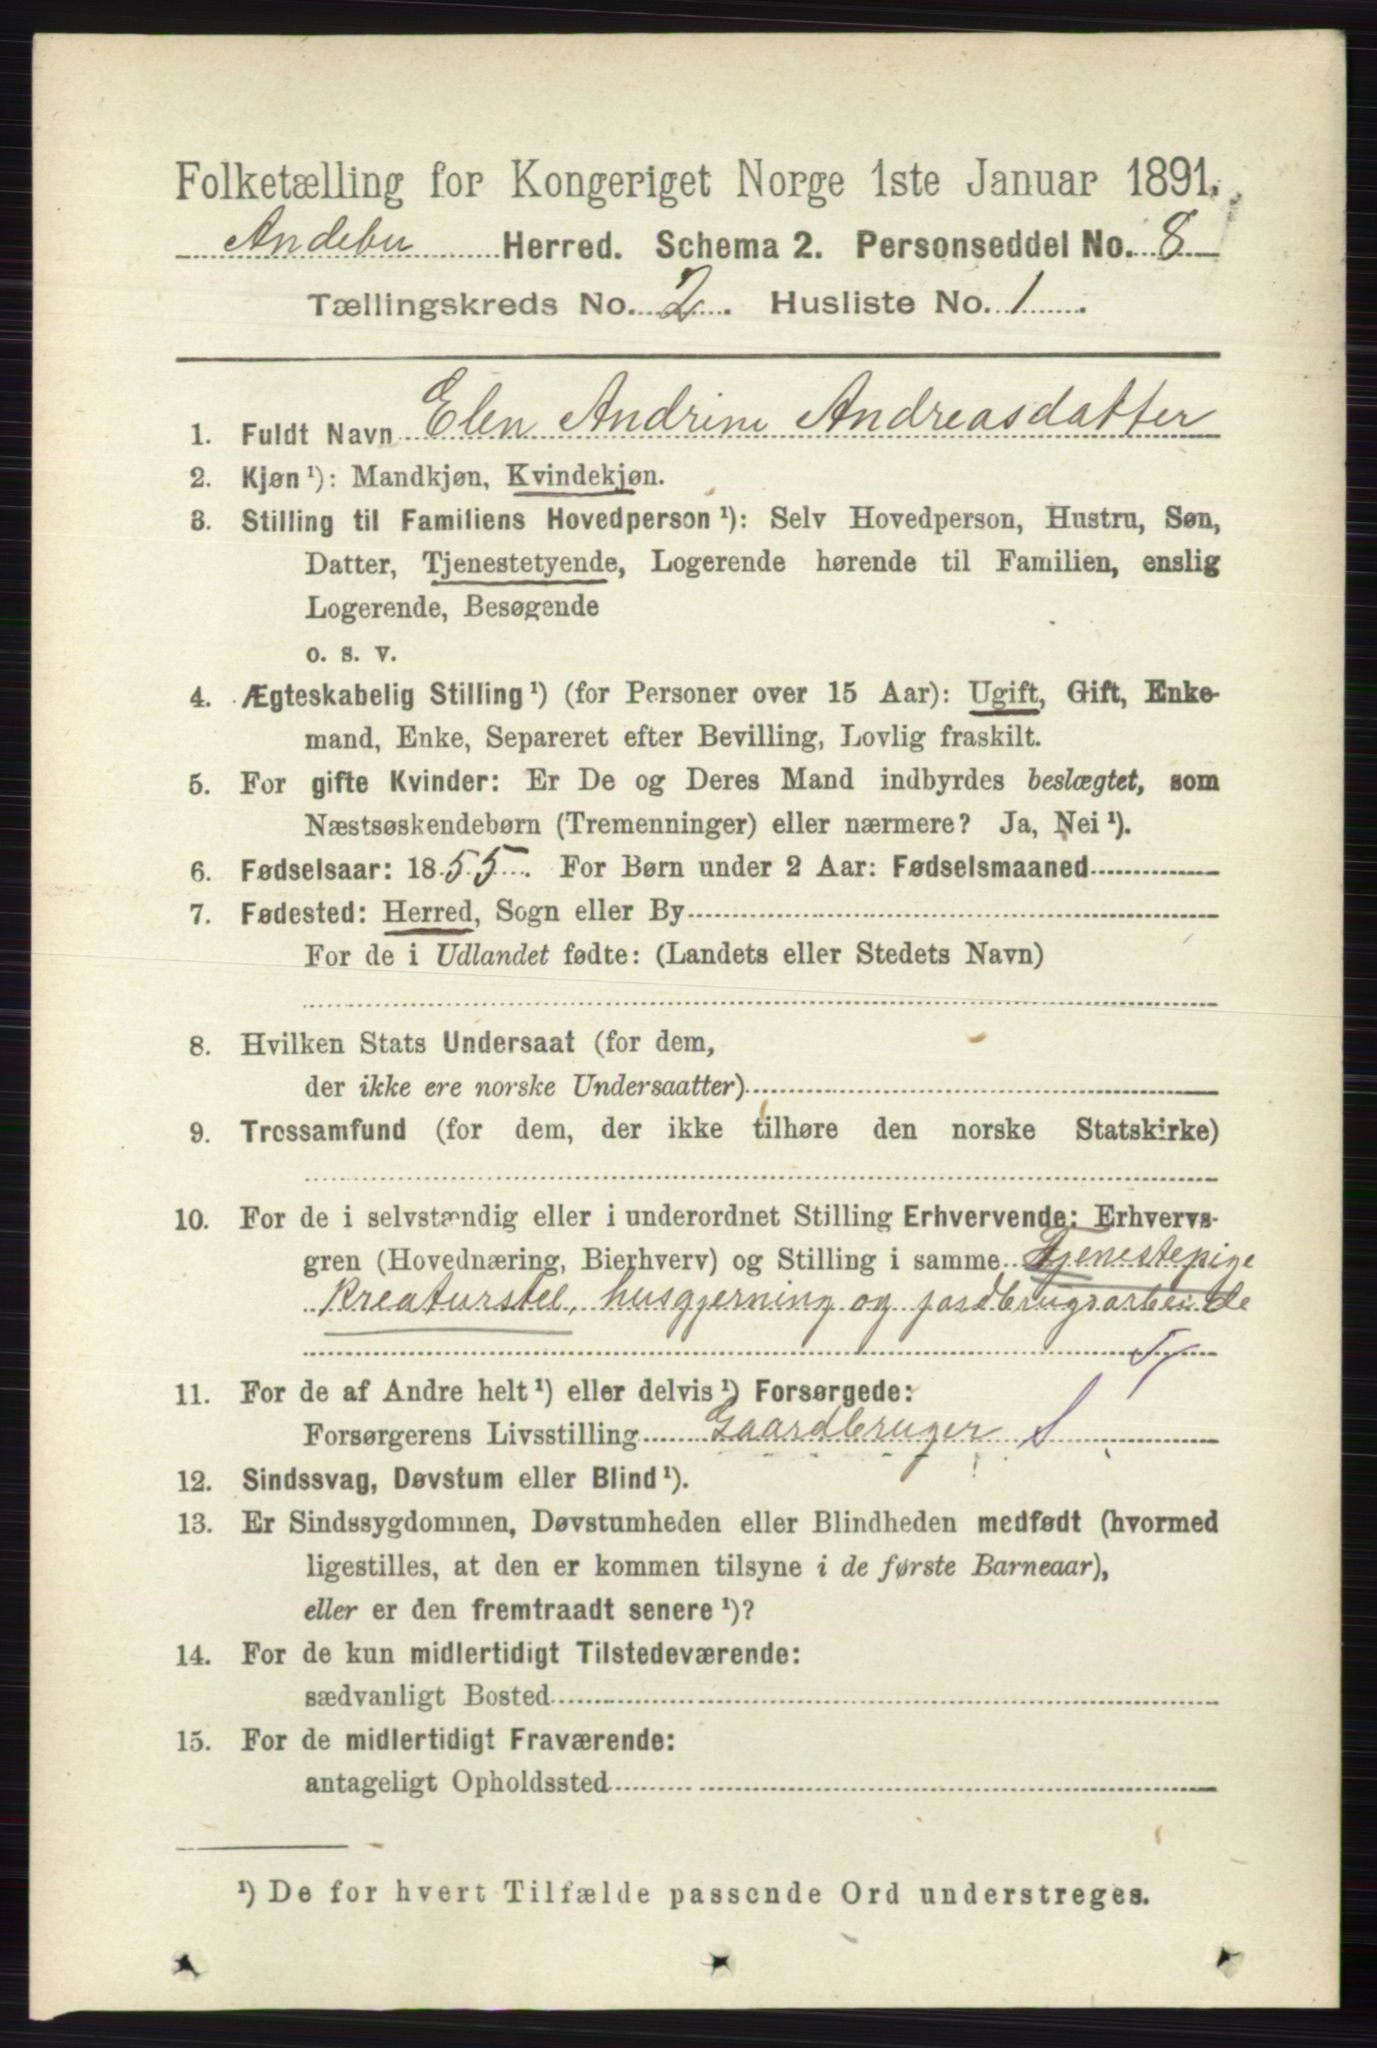 Folketælling for Kongeriget Norge 1ste Januar 1891.
Andebu Herred. Schema 2. Personseddel No. 8
Tællingskreds No. 2. Husliste No. 1.
1. Fuldt Navn Elen Andrine Andreasdatter
2. Kjøn ¹): Mandkjøn, Kvindekjøn.
3. Stilling til Familiens Hovedperson ¹): Selv Hovedperson, Hustru, Søn,
Datter, Tjenestetyende, Logerende hørende til Familien, enslig
Logerende, Besøgende
o. s. v.
4. Ægteskabelig Stilling ¹) (for Personer over 15 Aar): Ugift, Gift, Enke-
mand, Enke, Separeret efter Bevilling, Lovlig fraskilt.
5. For gifte Kvinder: Er De og Deres Mand indbyrdes beslægtet, som
Næstsøskendebørn (Tremenninger) eller nærmere? Ja, Nei ¹).
6. Fødselsaar: 1855. For Børn under 2 Aar: Fødselsmaaned
7. Fødested: Herred, Sogn eller By
For de i Udlandet fødte: (Landets eller Stedets Navn)
8. Hvilken Stats Undersaat (for dem,
der ikke ere norske Undersaatter)
9. Trossamfund (for dem, der ikke tilhøre den norske Statskirke)
10. For de i selvstændig eller i underordnet Stilling Erhvervende: Erhvervs-
gren (Hovednæring, Bierhverv) og Stilling i samme Tjenestepige
Kreaturstel, husgjerning og jordbrugsarbeide
11. For de af Andre helt ¹) eller delvis ¹) Forsørgede:
Forsørgerens Livsstilling Gaardbruger
12. Sindssvag, Døvstum eller Blind ¹).
13. Er Sindssygdommen, Døvstumheden eller Blindheden medfødt (hvormed
ligestilles, at den er kommen tilsyne i de første Barneaar),
eller er den fremtraadt senere ¹)?
14. For de kun midlertidigt Tilstedeværende:
sædvanligt Bosted
15. For de midlertidigt Fraværende:
antageligt Opholdssted
¹) De for hvert Tilfælde passende Ord understreges.